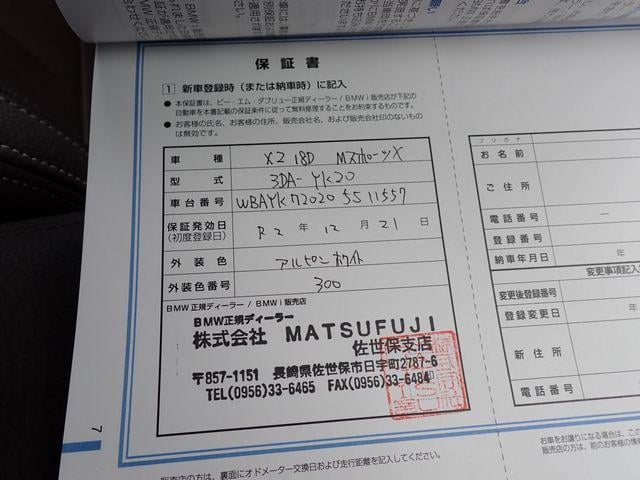 保証書
1 新車登録時(または納車時)に記入
● 本保証書は、ビー・エム・ダブリュー正規ディーラー/BMW i 販売店が下記の
自動車を本書記載の保証条件に従って無料修理することをお約束するものです。
● お客様の氏名、お客様の住所、販売会社名、および販売会社印のないもの
は無効です。
車種 X2 18D MスポーツX
型式 3DA-YK20
車台番号 WBAYK72020 5S11557
保証発効日 R2年12月21日
(初度登録日)
外装色 アルピンホワイト
外装色番号 300
BMW正規ディーラー/BMW i 販売店
BMW正規ディーラー
株式会社 MATSUFUJI
佐世保支店
〒857-1151 長崎県佐世保市日宇町2787-6
TEL(0956)33-6465 FAX(0956)33-6484
7
販売店の方は、裏面にオドメーター交換日および走行距離を記入してください。
フリガナ
お名前
ご住所
電話番号 —
登録番号
納車年月日 年
変更事項記入
変更後登録番号
登録変更日 年
新住所
電話番号
お車をお譲りになる場合は、この
販売店の方は、前のお客様の情